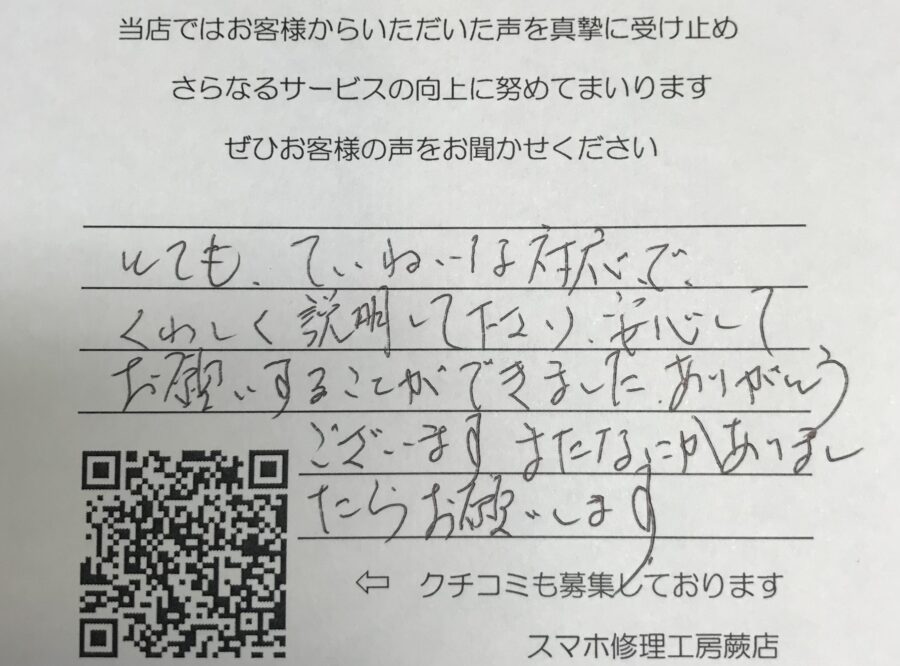 当店ではお客様からいただいた声を真摯に受け止め
さらなるサービスの向上に努めてまいります
ぜひお客様の声をお聞かせください
とても、ていねいな対応で、
くわしく説明して下さり、安心して
お願いすることができました。ありがとう
ございます またなにかありまし
たらお願いします
⇦ クチコミも募集しております
スマホ修理工房蕨店